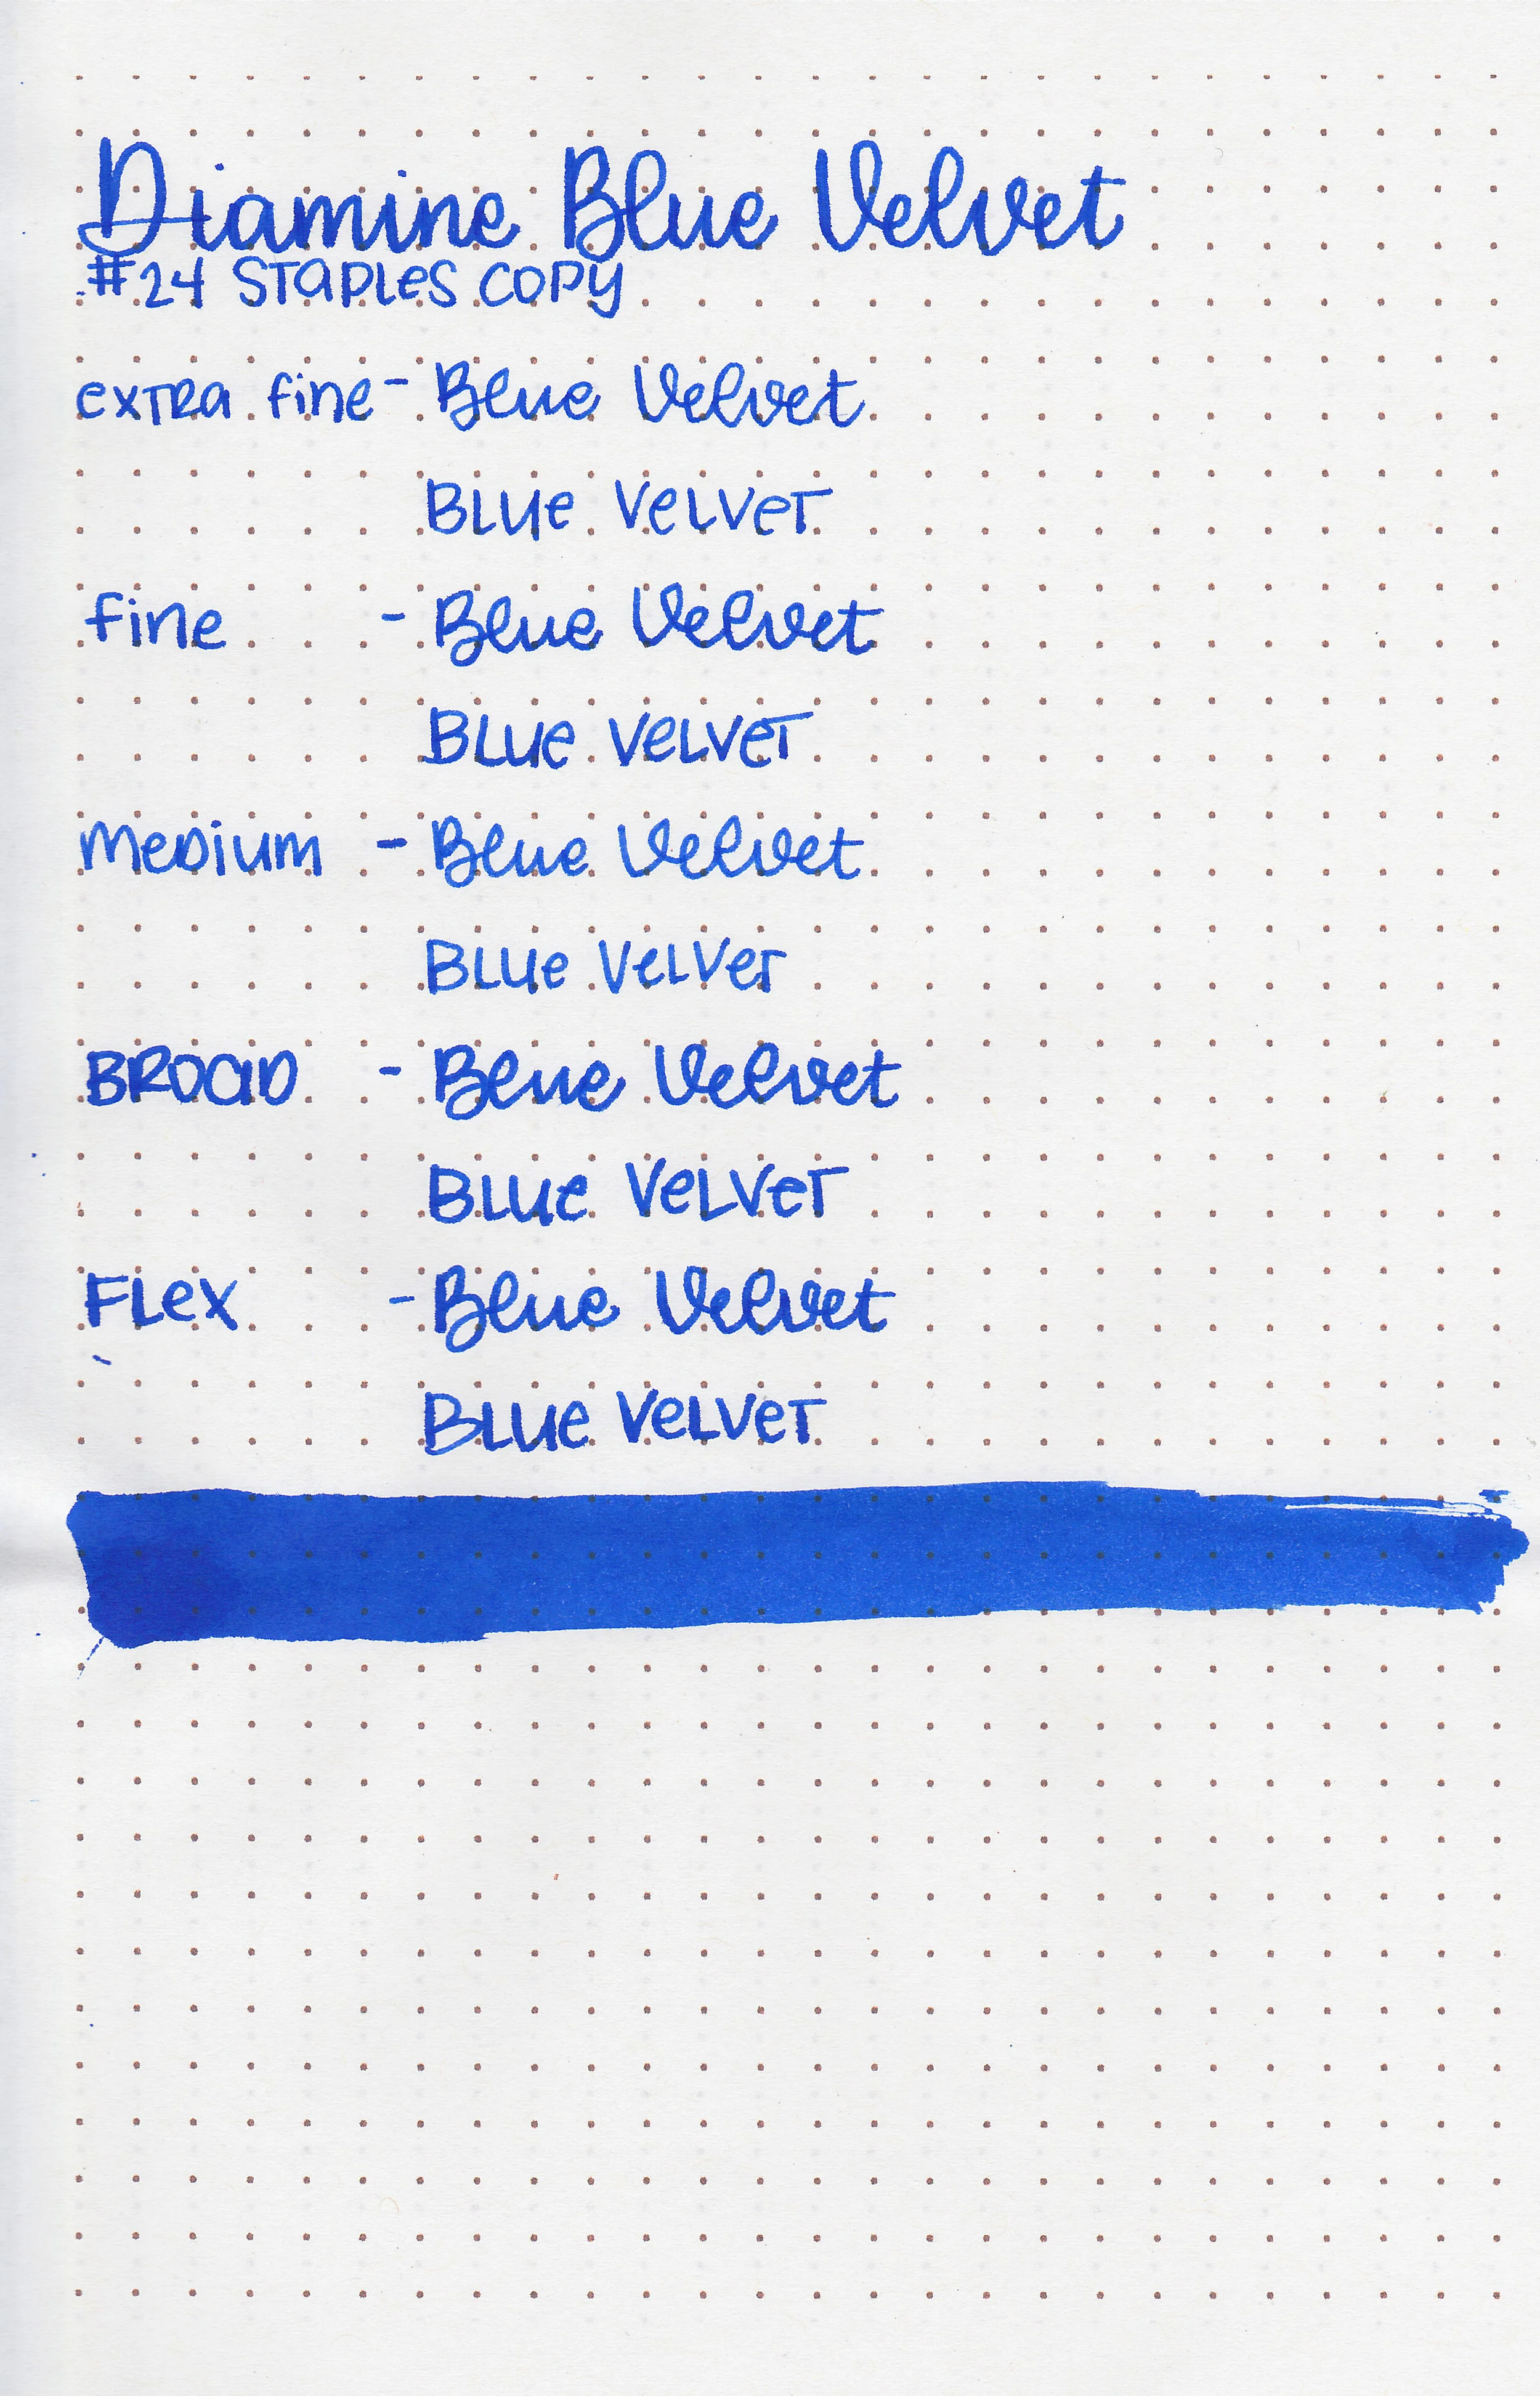 Diamine Blue Velvet
#24 STAPLES COPY
extra fine - Blue Velvet
BLUe VeLVeT
fine - Blue Velvet
BLUe VeLVeT
MeDium - Blue Velvet
BLUe VeLVeT
BROAD - Blue Velvet
BLUe VeLVeT
FLex - Blue Velvet
BLUe VeLVeT